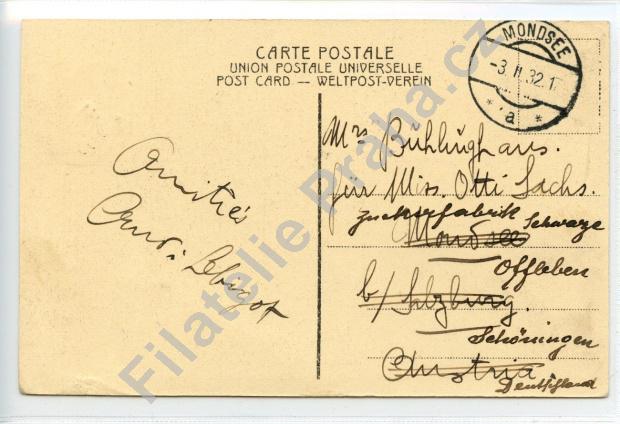 CARTE POSTALE
UNION POSTALE UNIVERSELLE
POST CARD — WELTPOST-VEREIN
MONDSEE
-3. II. 32. 1
* a *
Amitiés
Mrs.
für Miss. Otti Sachs.
Zuckerfabrik Schwarze
Mondsee
Offleben
b/ Salzburg.
Schöningen
Austria
Deutschland
Filatelie Praha.cz